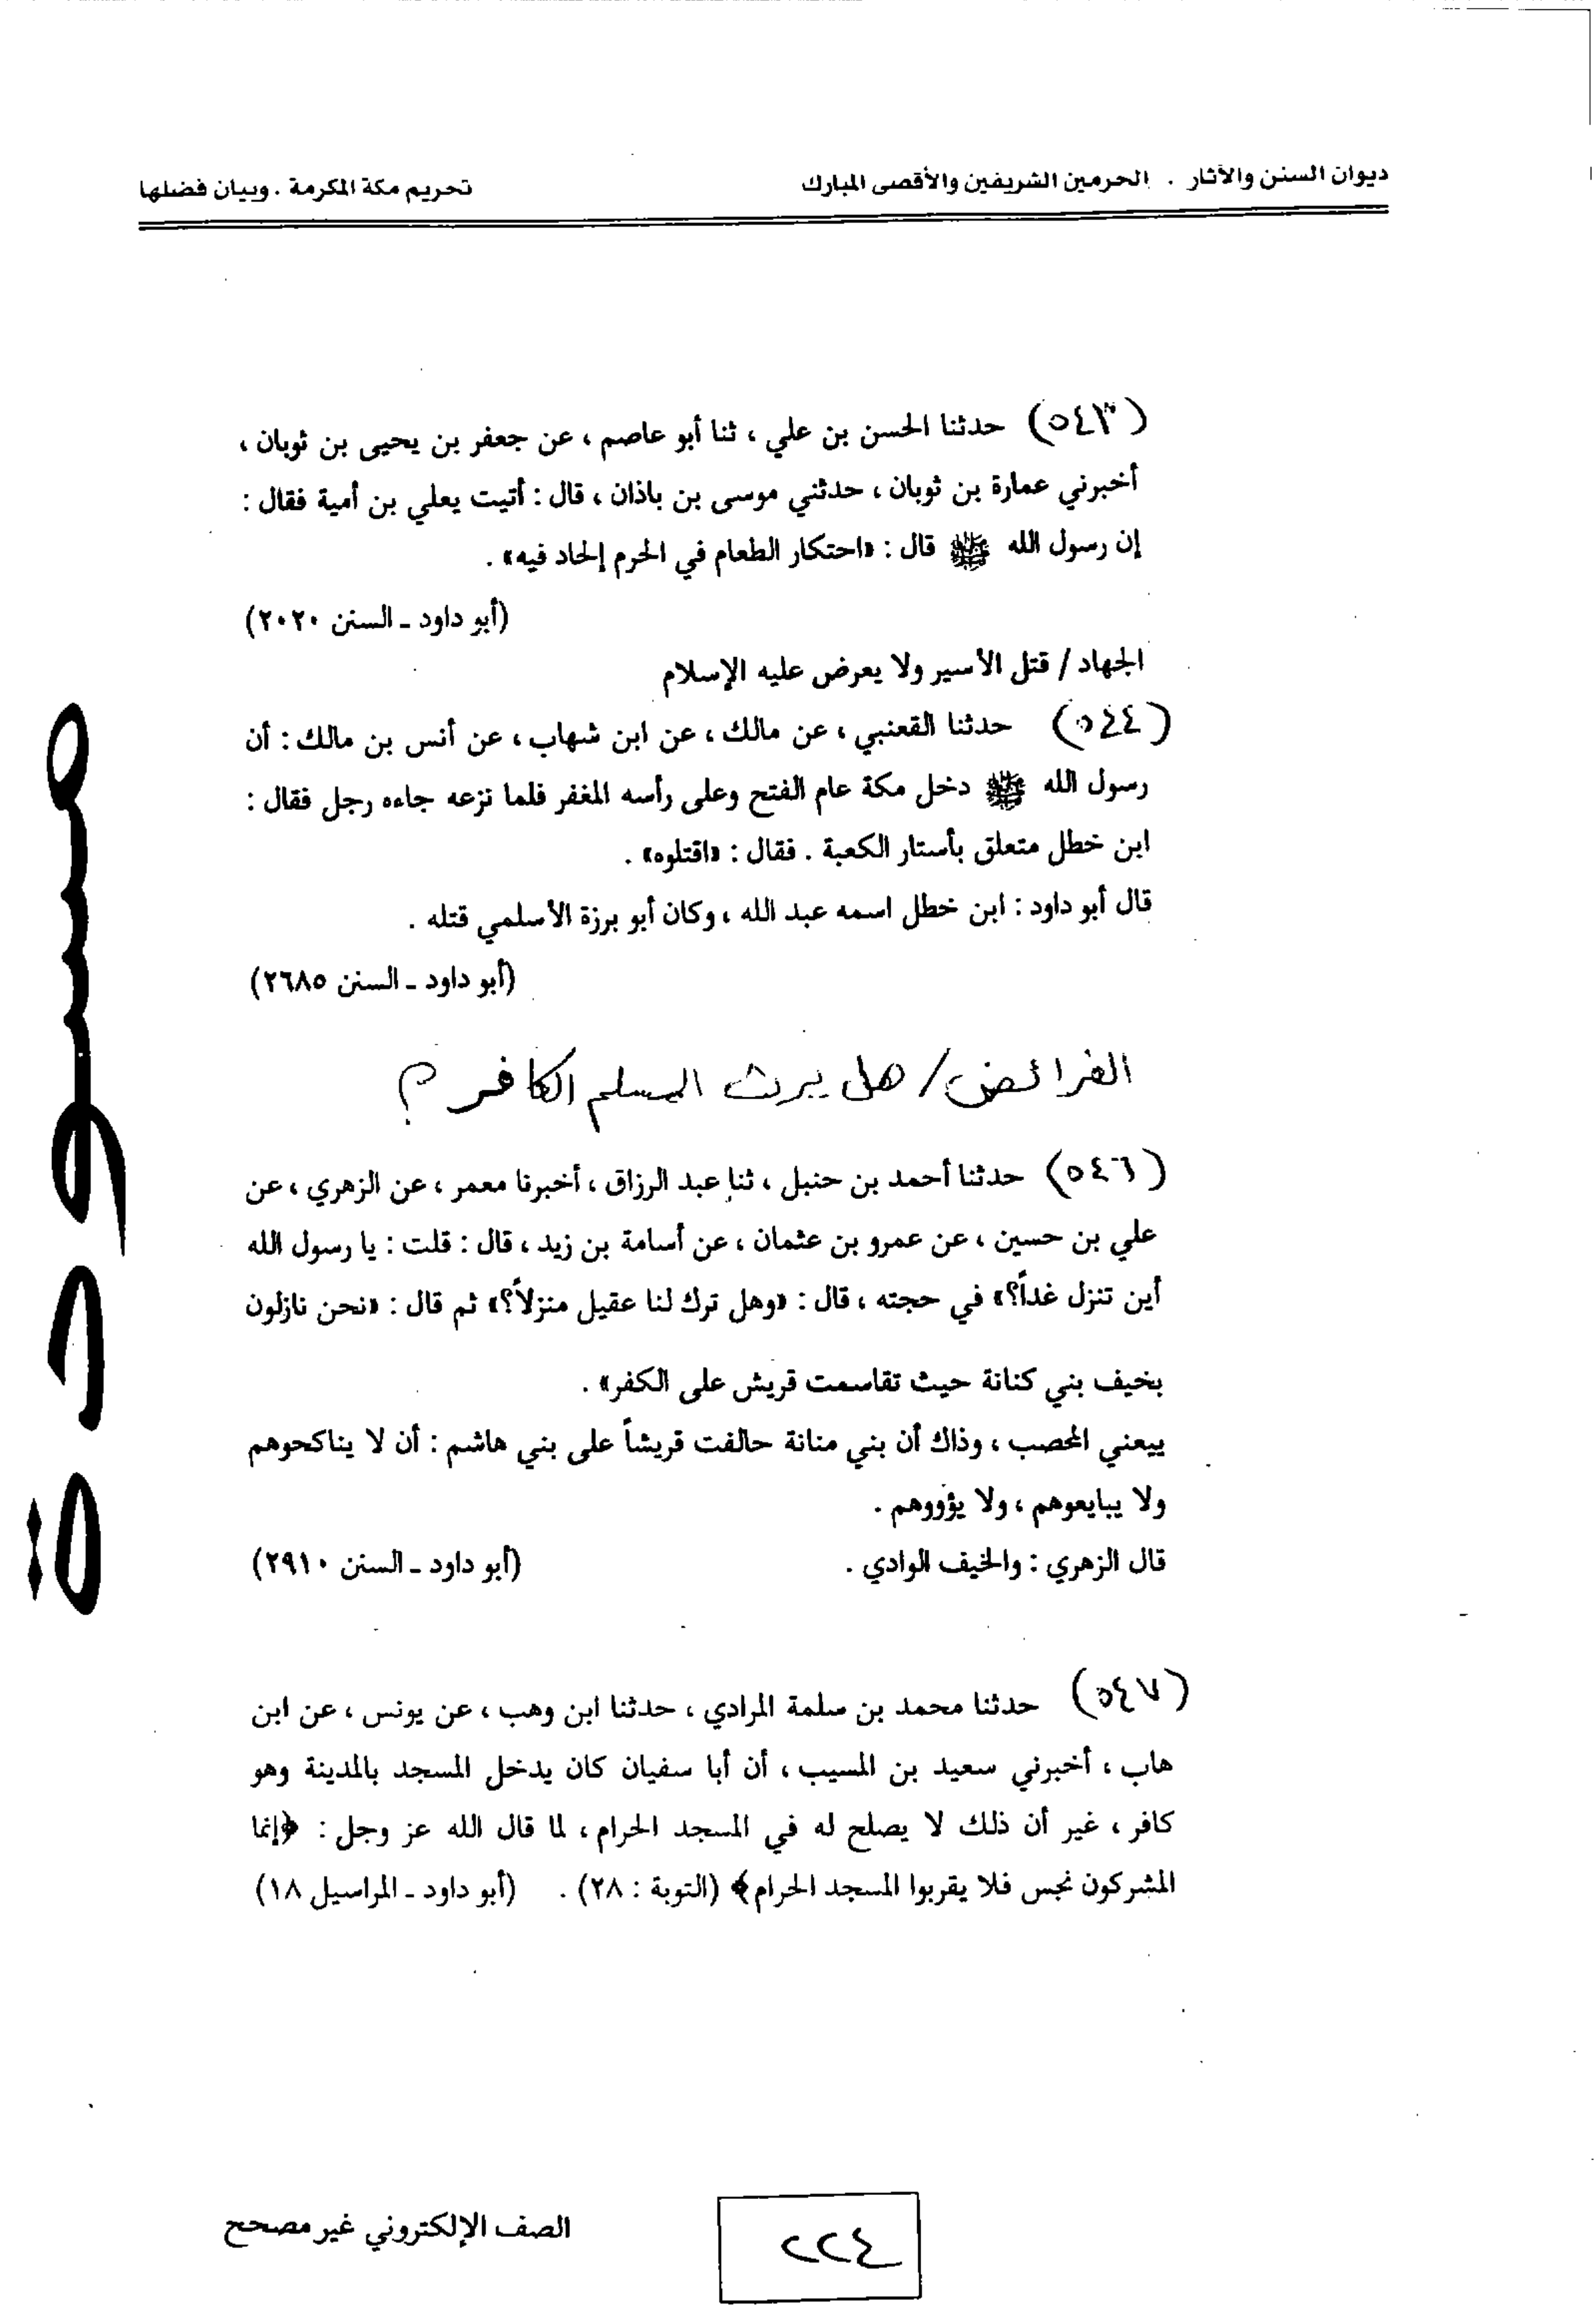 ديوان السنن والآثار . الحرمين الشريفين والأقصى المبارك
تحريم مكة المكرمة . وبيان فضلها
(٥٤٣) حدثنا الحسن بن علي ، ثنا أبو عاصم ، عن جعفر بن يحيى بن ثوبان ،
أخبرني عمارة بن ثوبان ، حدثني موسى بن باذان ، قال : أتيت يعلي بن أمية فقال :
إن رسول الله ﷺ قال : «احتكار الطعام في الحرم إلحاد فيه» .
(أبو داود ـ السنن ٢٠٢٠)
الجهاد / قتل الأسير ولا يعرض عليه الإسلام
(٥٤٤) حدثنا القعنبي ، عن مالك ، عن ابن شهاب ، عن أنس بن مالك : أن
رسول الله ﷺ دخل مكة عام الفتح وعلى رأسه المغفر فلما نزعه جاءه رجل فقال :
ابن خطل متعلق بأستار الكعبة . فقال : «اقتلوه» .
قال أبو داود : ابن خطل اسمه عبد الله ، وكان أبو برزة الأسلمي قتله .
(أبو داود ـ السنن ٢٦٨٥)
الفرائض / هل يرث المسلم الكافر ؟
(٥٤٦) حدثنا أحمد بن حنبل ، ثنا عبد الرزاق ، أخبرنا معمر ، عن الزهري ، عن
علي بن حسين ، عن عمرو بن عثمان ، عن أسامة بن زيد ، قال : قلت : يا رسول الله
أين تنزل غداً؟» في حجته ، قال : «وهل ترك لنا عقيل منزلاً؟» ثم قال : «نحن نازلون
بخيف بني كنانة حيث تقاسمت قريش على الكفر» .
ييعني المحصب ، وذاك أن بني منانة حالفت قريشاً على بني هاشم : أن لا يناكحوهم
ولا يبايعوهم ، ولا يؤووهم .
قال الزهري : والخيف الوادي . (أبو داود ـ السنن ٢٩١٠)
(٥٤٧) حدثنا محمد بن سلمة المرادي ، حدثنا ابن وهب ، عن يونس ، عن ابن
هاب ، أخبرني سعيد بن المسيب ، أن أبا سفيان كان يدخل المسجد بالمدينة وهو
كافر ، غير أن ذلك لا يصلح له في المسجد الحرام ، لما قال الله عز وجل : ﴿إنما
المشركون نجس فلا يقربوا المسجد الحرام﴾ (التوبة : ٢٨) . (أبو داود ـ المراسيل ١٨)
مسودة
الصف الإلكتروني غير مصحح
٢٢٤